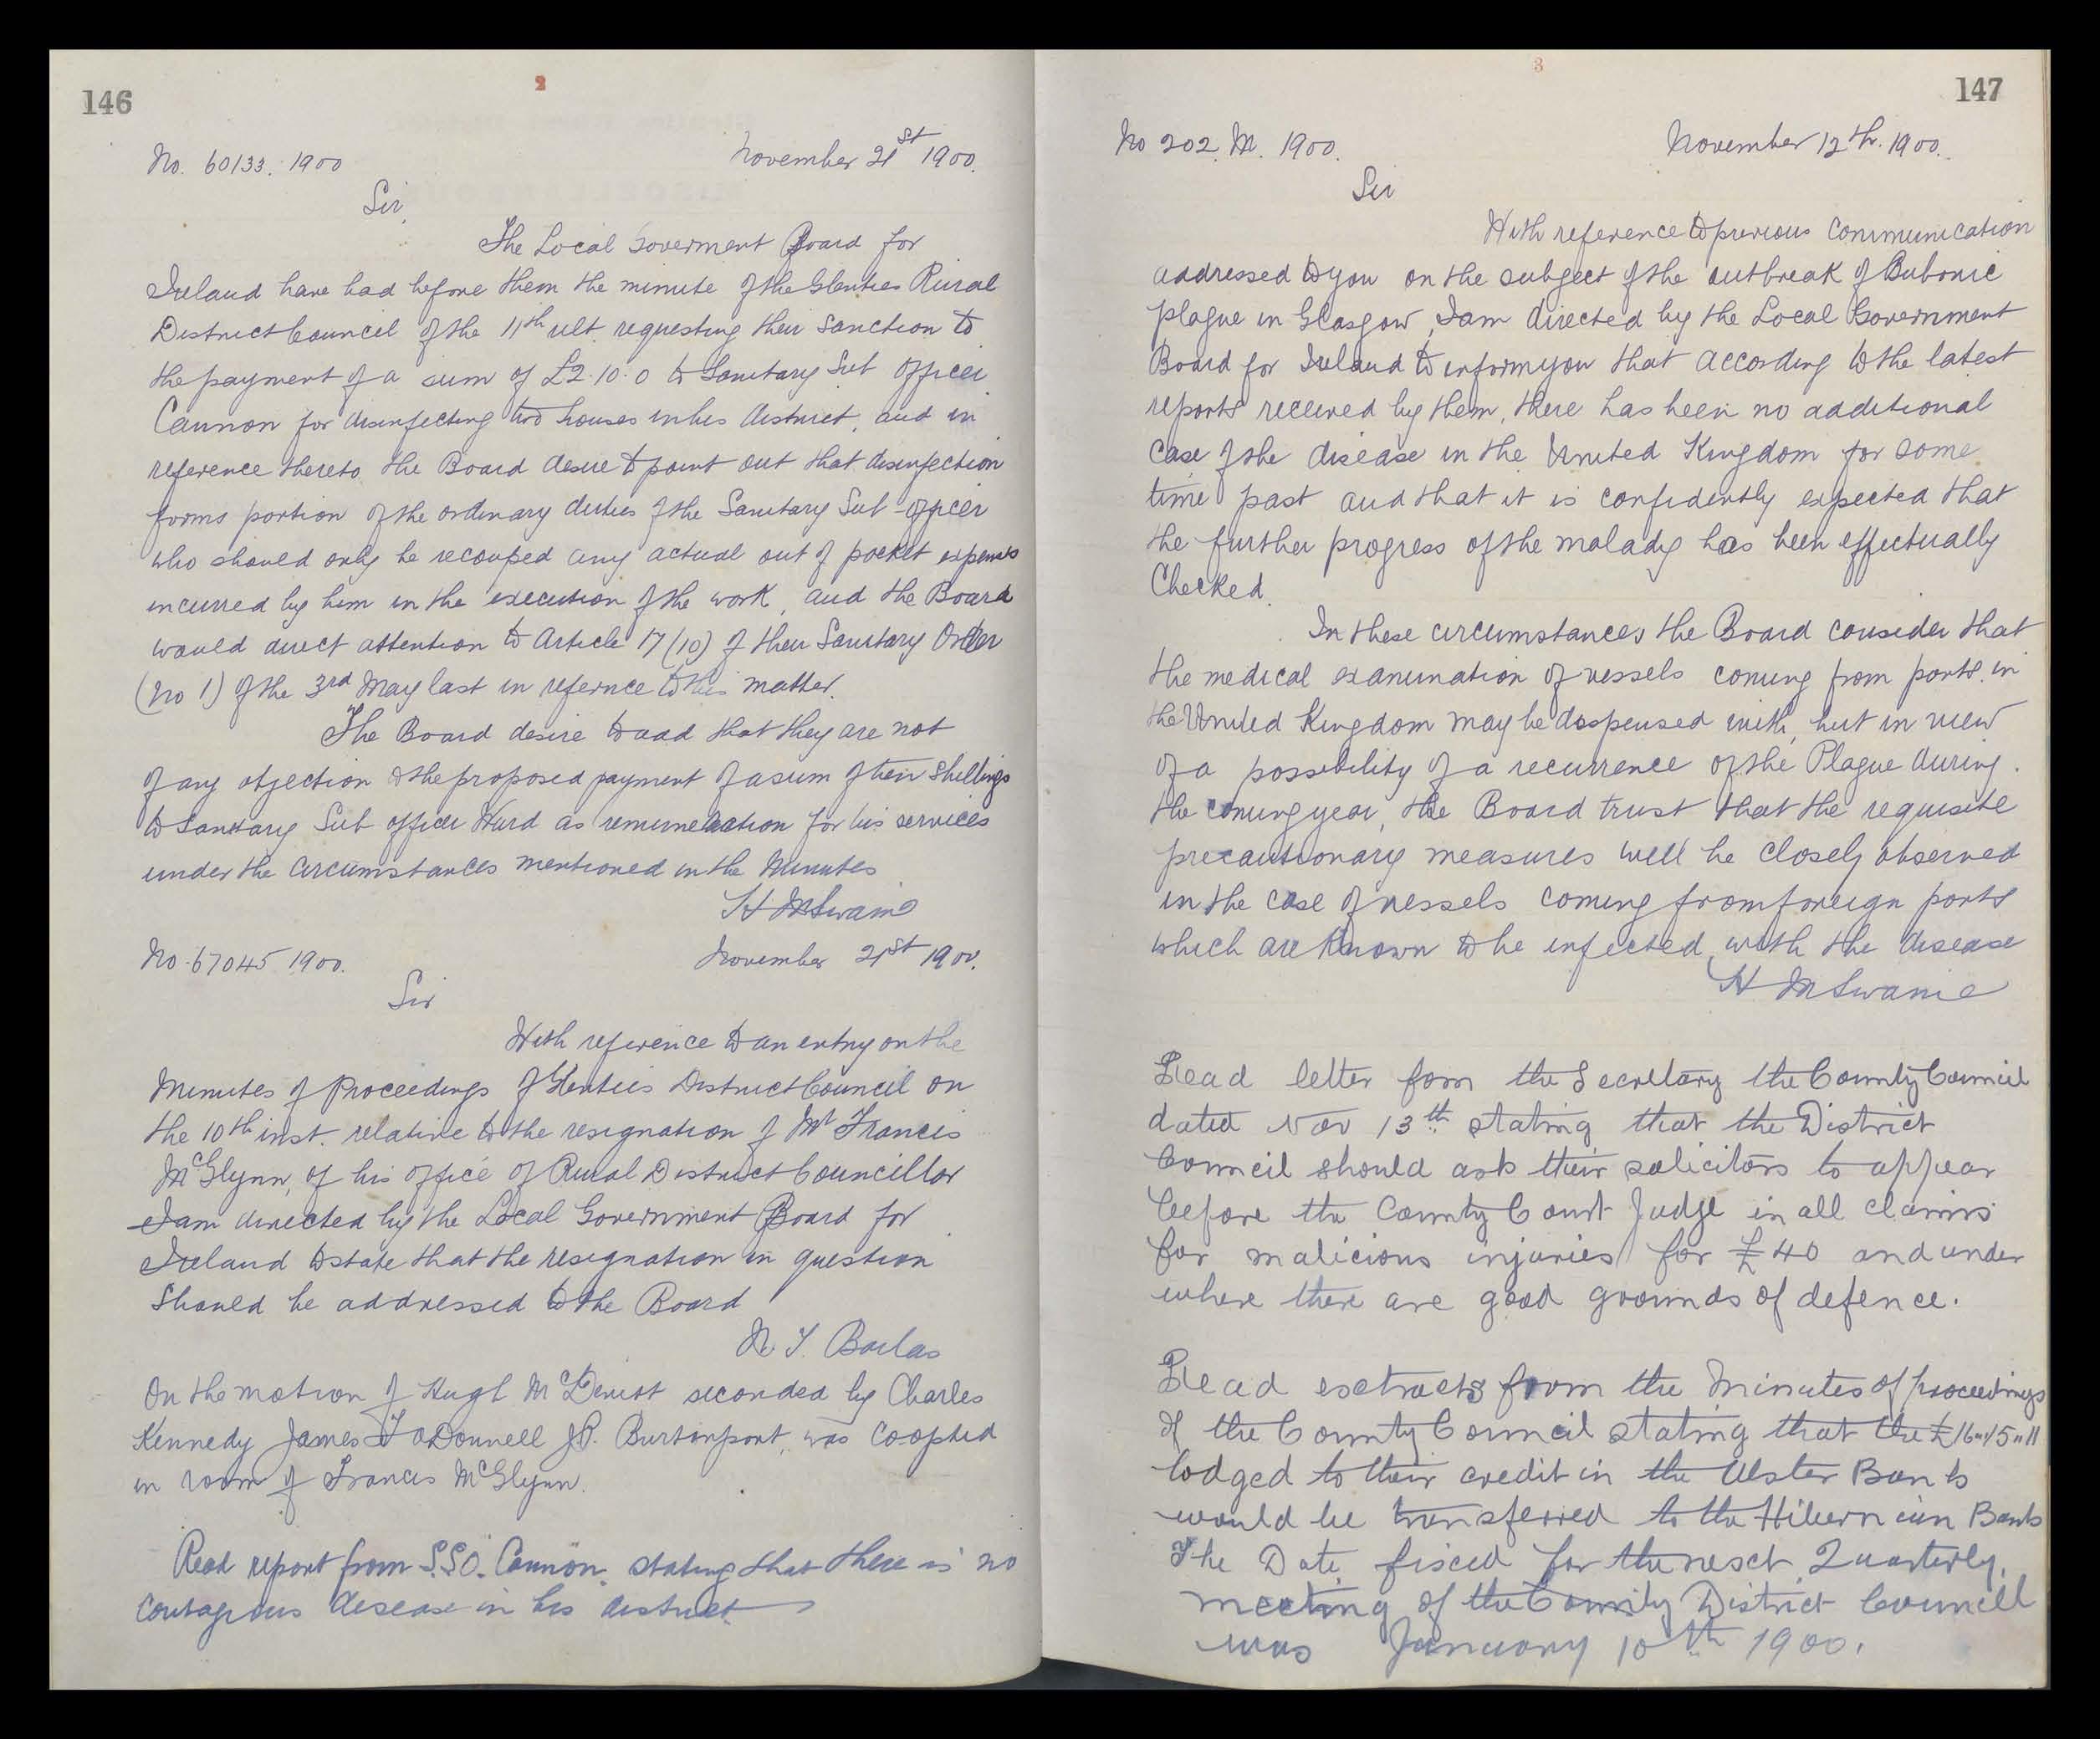 146
2
No. 60133. 1900 November 21st 1900.
Sir,
The Local Goverment Board for
Ireland have had before them the minute of the Glenties Rural
District Council of the 11th ult. requesting their sanction to
the payment of a sum of £2.10.0 to Sanitary Sub Officer
Cannon for disinfecting two houses in his district, and in
reference thereto the Board desire to point out that disinfection
forms portion of the ordinary duties of the Sanitary Sub-officer
who should only be recouped any actual out of pocket expenses
incurred by him in the execution of the work, and the Board
would direct attention to Article 17 (10) of their Sanitary Order
(No 1) of the 3rd May last in refernce to this matter.
The Board desire to add that they are not
of any objection to the proposed payment of a sum of ten shillings
to Sanitary Sub officer Ward as remuneration for his services
under the circumstances mentioned in the Minutes
H M Swaine
No. 67045 1900. November 21st 1900.
Sir
With reference to an entry on the
Minutes of Proceedings of Glenties District Council on
the 10th inst. relative to the resignation of Mr Francis
McGlynn, of his office of Rural District Councillor
I am directed by the Local Government Board for
Ireland to state that the resignation in question
should be addressed to the Board
Barlas
On the motion of Hugh McDevitt seconded by Charles
Kennedy James F ODonnell J.P. Burtonport, was Coopted
in room of Francis McGlynn.
Read report from S.S.O. Cannon. stating that there is no
contagious disease in his district
3
147
No 202. M. 1900. November 12th. 1900.
Sir
With reference to previous communication
addressed to you on the subject of the outbreak of Bubonic
plague in Glasgow, I am directed by the Local Government
Board for Ireland to inform you that according to the latest
reports received by them, there has been no additional
case of the disease in the United Kingdom for some
time past and that it is confidently expected that
the further progress of the malady has been effectually
Checked.
In these circumstances the Board consider that
the medical examination of vessels coming from ports in
the United Kingdom may be dispensed with, but in view
of a possibility of a recurrence of the Plague during
the coming year, the Board trust that the requisite
precautionary measures will be closely observed
in the case of vessels coming from foreign ports
which are known to be infected with the disease
H M Swaine
Read letter fom the Secretary the County Council
dated Nov 13th stating that the District
Council should ask their solicitors to appear
before the County Court Judge in all claims
for malicious injuries for £40 and under
where there are good grounds of defence.
Read extracts from the Minutes of proceedings
of the County Council stating that the £16"15"11
lodged to their credit in the Ulster Bank
would be transferred to the Hibernian Bank
The Date fixed for the next Quarterly
meeting of the County District Council
was January 10th 1900.